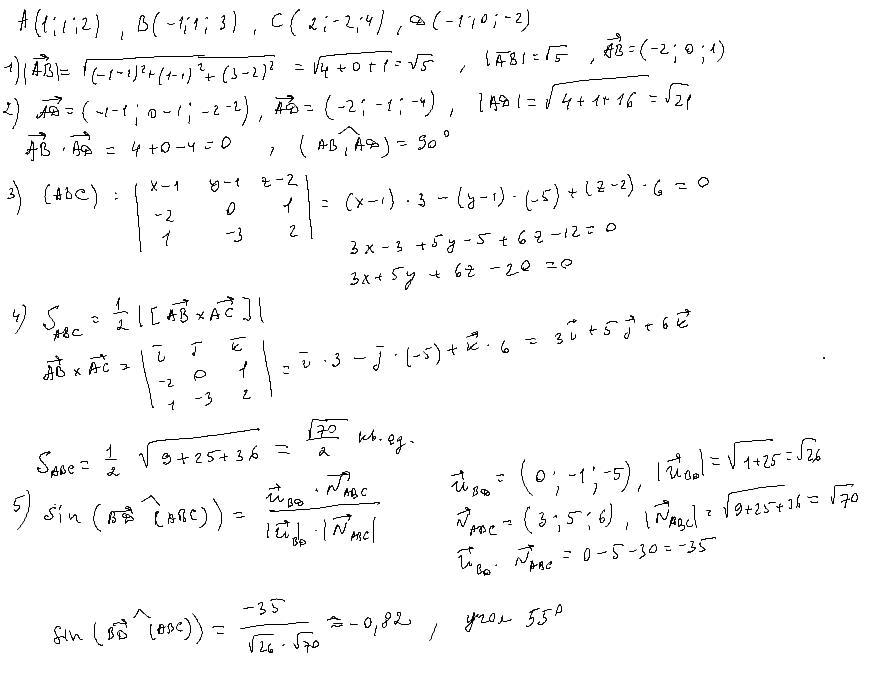 A(1;1;2) , B(-1;1;3) , C(2;-2;4) , D(-1;0;-2)
1) |AB| = √((-1-1)²+(1-1)²+(3-2)²) = √(4+0+1) = √5 , |AB| = √5 , AB = (-2;0;1)
2) AD = (-1-1; 0-1; -2-2) , AD = (-2; -1; -4) , |AD| = √(4+1+16) = √21
AB · AD = 4+0-4=0 , (AB^AD) = 90°
3) (ABC) : | x-1 y-1 z-2 |
| -2 0 1 | = (x-1)·3 - (y-1)·(-5) + (z-2)·6 = 0
| 1 -3 2 |
3x-3+5y-5+6z-12=0
3x+5y+6z-20=0
4) S_ABC = 1/2 |[AB × AC]|
AB × AC = | i j k |
| -2 0 1 | = i·3 - j·(-5) + k·6 = 3i + 5j + 6k
| 1 -3 2 |
S_ABC = 1/2 √(9+25+36) = √70/2 кв. ед.
5) Sin (BD^(ABC)) = (u_BD · N_ABC) / (|u_BD| · |N_ABC|)
u_BD = (0; -1; -5), |u_BD| = √(1+25) = √26
N_ABC = (3; 5; 6), |N_ABC| = √(9+25+36) = √70
u_BD · N_ABC = 0-5-30=-35
Sin (BD^(ABC)) = -35/(√26·√70) ≈ -0,82 , угол 55°